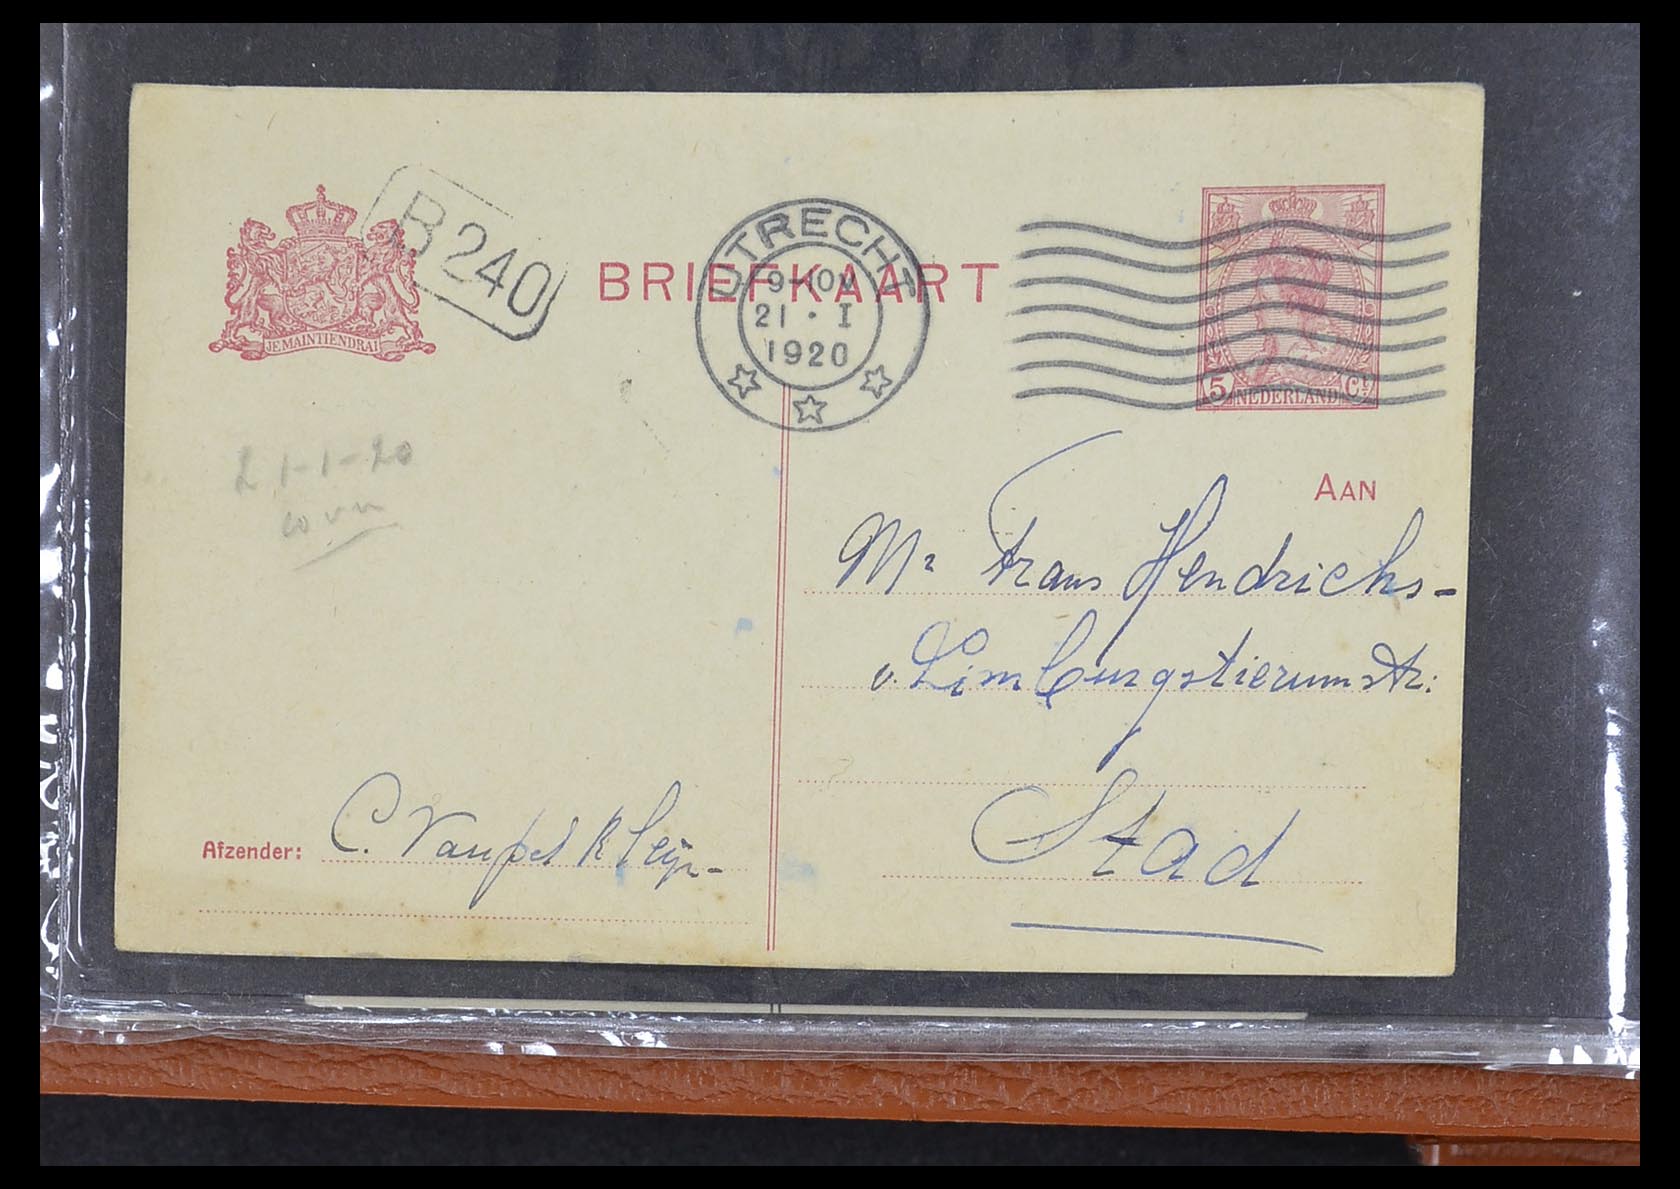 B240
JE MAINTIENDRAI
BRIEFKAART
UTRECHT
9-10V
21 · I
1920
5 NEDERLAND Ct
21-1-20
AAN
Mr Frans Hendrichs-
v. Limburgstierumstr:
Stad
Afzender: C. Kleijn-